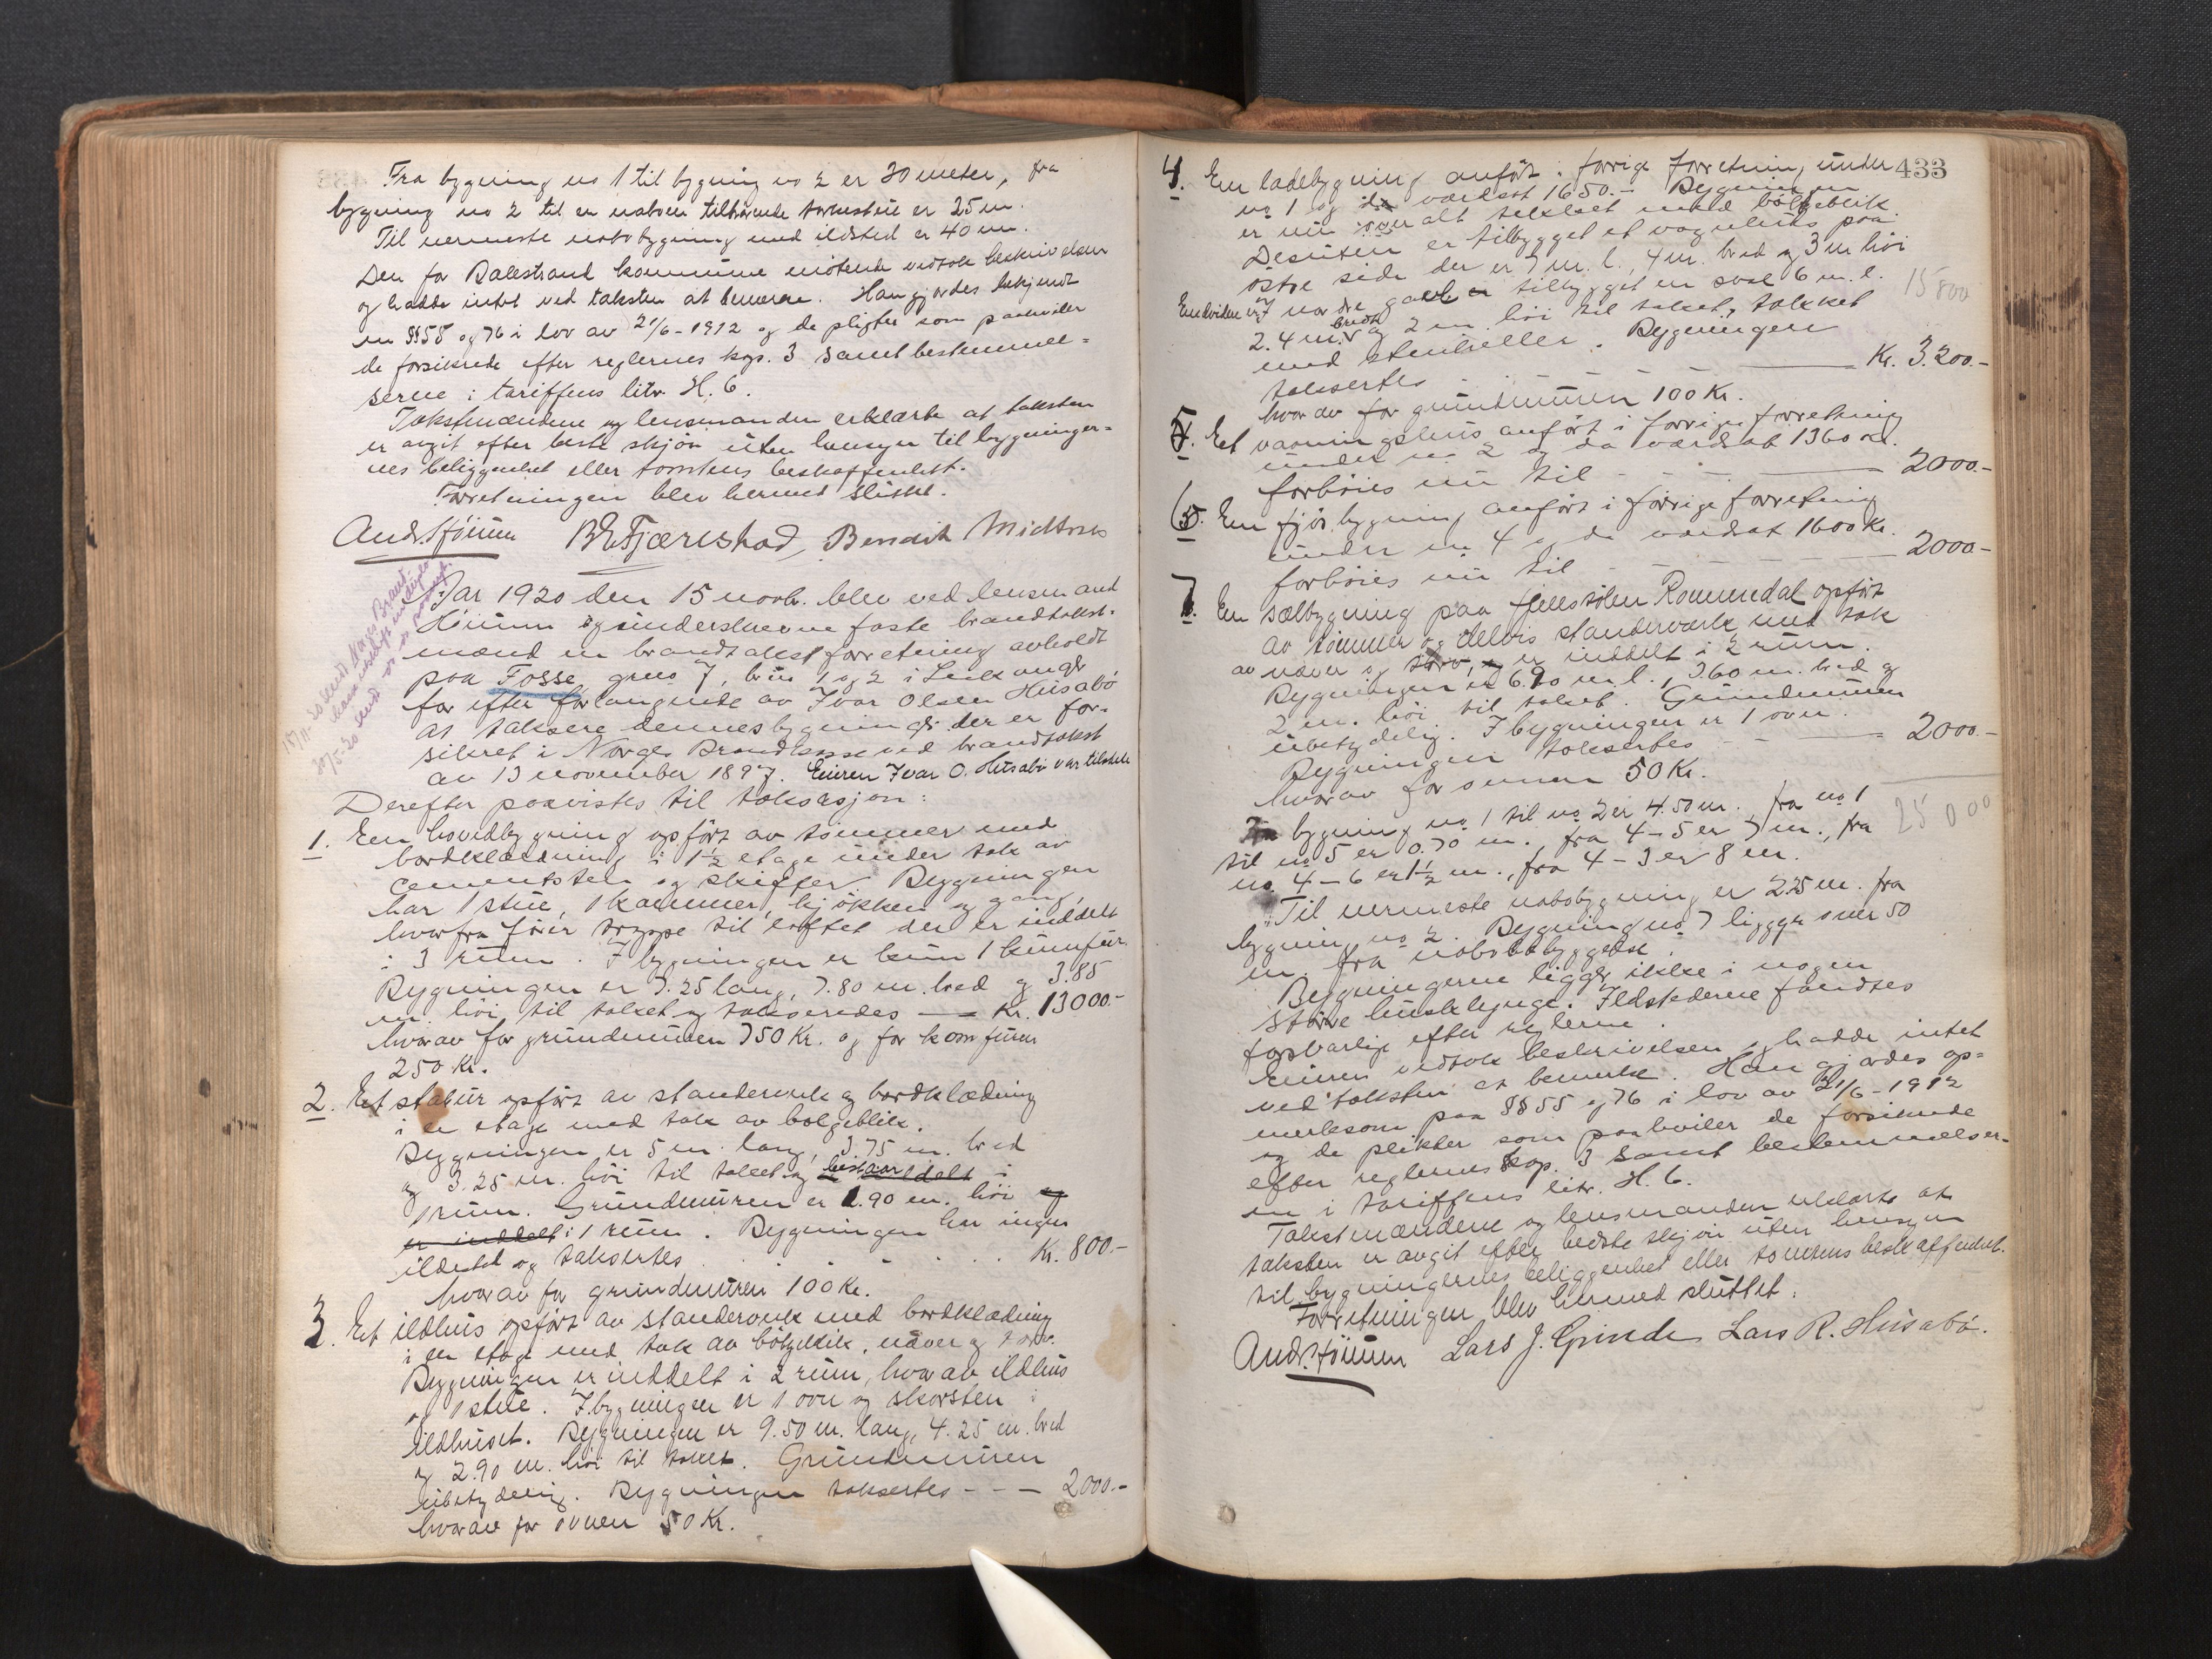 Fra bygning no 1 til bygning no 2 er 30 meter, fra
bygning no 2 til en naboen tilhørende tørkestue er 25 m.
Til nermeste nabobygning med ildsted er 40 m.
Den for Balestrand kommune møtende vedtok beskrivelsen
og hadde intet ved taksten at bemerke. Han gjordes bekjendt
m §§ 55 og 76 i lov av 21/6-1912 og de pligter som paahviler
de forsikrede efter reglernes kap. 3 samt bestemmel=
serne i tariffens litr. H. 6.
Takstmændene og lensmanden erklærte at taksten
er avgit efter beste skjøn uten hensyn til bygninger=
nes beliggenhet eller tomtens beskaffenhet.
Forretningen blev hermed sluttet.
And. Höium B E Fjærestad, Bendik Midtnes
Aar 1920 den 15 novb. blev ved lensmand
Höium og underskrevne faste brandtakst-
mænd en brandtakstforretning avholdt
paa Fosse, gno 7, bno 1 og 2 i Leikanger
for efter forlangende av Ivar Olsen Husabö
at taksere dennes bygninger der er for-
sikret i Norges Brandkasse ved brandtakst
av 13 november 1897. Eieren Ivar O. Husabö var tilstede
Derefter paavistes til taksasjon:
1. En hovedbygning opfört av tömmer med
bordklædning i 1½ etage under tak av
cementsten og skiffer. Bygningen
har 1 stue, 1 kammer, kjökken og gang,
hvorfra förer trappe til loftet der er inddelt
i 3 rum. I bygningen er kun 1 kumfur.
Bygningen er 7.25 lang, 7.80 m. bred og 3.85
m. höi til taket og takseredes — Kr. 13000.-
hvorav for grundmuren 750 Kr. og for komfuren
250 Kr.
2. Et stabur opfört av standerverk og bordklædning
i en etage med tak av bølgeblik.
Bygningen er 5 m. lang, 3.75 m. bred
og 3.25 m. höi til taket og bestaar i
1 rum. Grundmuren er 1.90 m. höi og
er inddelt i 1 rum. Bygningen har ingen
ildsted og taksertes . . . . Kr. 800.-
hvorav for grundmuren 100 Kr.
3. Et ildhus opfört av standerverk med bordklædning
i en etage med tak av bölgeblik, næver og torv.
Bygningen er inddelt i 2 rum, hvorav ildhus
og 1 stue. I bygningen er 1 ovn og skorsten i
ildhuset. Bygningen er 9.50 m. lang, 4.25 m. bred
og 2.90 m. höi til taket. Grundmuren
ubetydelig. Bygningen taksertes - - - 2000.-
hvorav for ovnen 50 Kr.
433
4. En ladebygning anfört i forrige forretning under
no 1 og da værdsat 1650.- Bygningen
er nu overalt tekket med bölgeblik
Desuten er tilbygget et vognskur paa
östre side der er 7 m. l., 4 m. bred og 3 m höi
Endvidere er i nordre gavl tilbygget en sval 6 m. l.
2.4 m. bred og 2 m. höi til taket, tækket
med stenheller. Bygningen
taksertes — Kr. 3.200.-
hvorav for grundmuren 100 Kr.
15800
5. Et vaaningshus anfört i forrige forretning
under no 2 og da værdsat 1360 Kr.
forhöies nu til — 2000.-
6. En fjösbygning anfört i forrige forretning
under no 4 og da værdsat 1600 Kr.
forhöies nu til — 2000-
7. En sælbygning paa fjellstölen Rommedal opfört
av tömmer og delvis standerværk med tak
av næver og torv, er inddelt i 2 rum.
Bygningen er 6.90 m l., 3.60 m. bred og
2 m. höi til taket. Grundmuren
ubetydelig. I bygningen er 1 ovn.
Bygningen taksertes — 2000.-
hvorav for ovnen 50 Kr.
25000
Fra bygning no 1 til no 2 er 4.50 m., fra no 1
til no 5 er 0.70 m., fra 4-5 er 7 m., fra
no. 4-6 er 1½ m., fra 4-3 er 8 m.
Til nermeste nabobygning er 225 m. fra
bygning no 2. Bygning no 7 ligger over 50
m. fra nabobebyggelse.
Bygningerne ligger ikke i nogen
större husklynge. Ildstederne fandtes
forsvarlige efter reglerne.
Eieren vedtok beskrivelsen og hadde intet
ved taksten at bemerke. Han gjordes op=
merksom paa §§ 55 og 76 i lov av 21/6-1912
og de plikter som paahviler de forsikrede
efter reglernes kap. 3 samt bestemmelser-
ne i tariffens litr. H. 6.
Takstmændene og lensmanden erklærte at
taksten er avgit efter bedste skjön uten hensyn
til bygningernes beliggenhet eller tomtens beskaffenhet.
Forretningen blev hermed sluttet.
And. Höium Lars J. Grinde Lars R. Husabö.